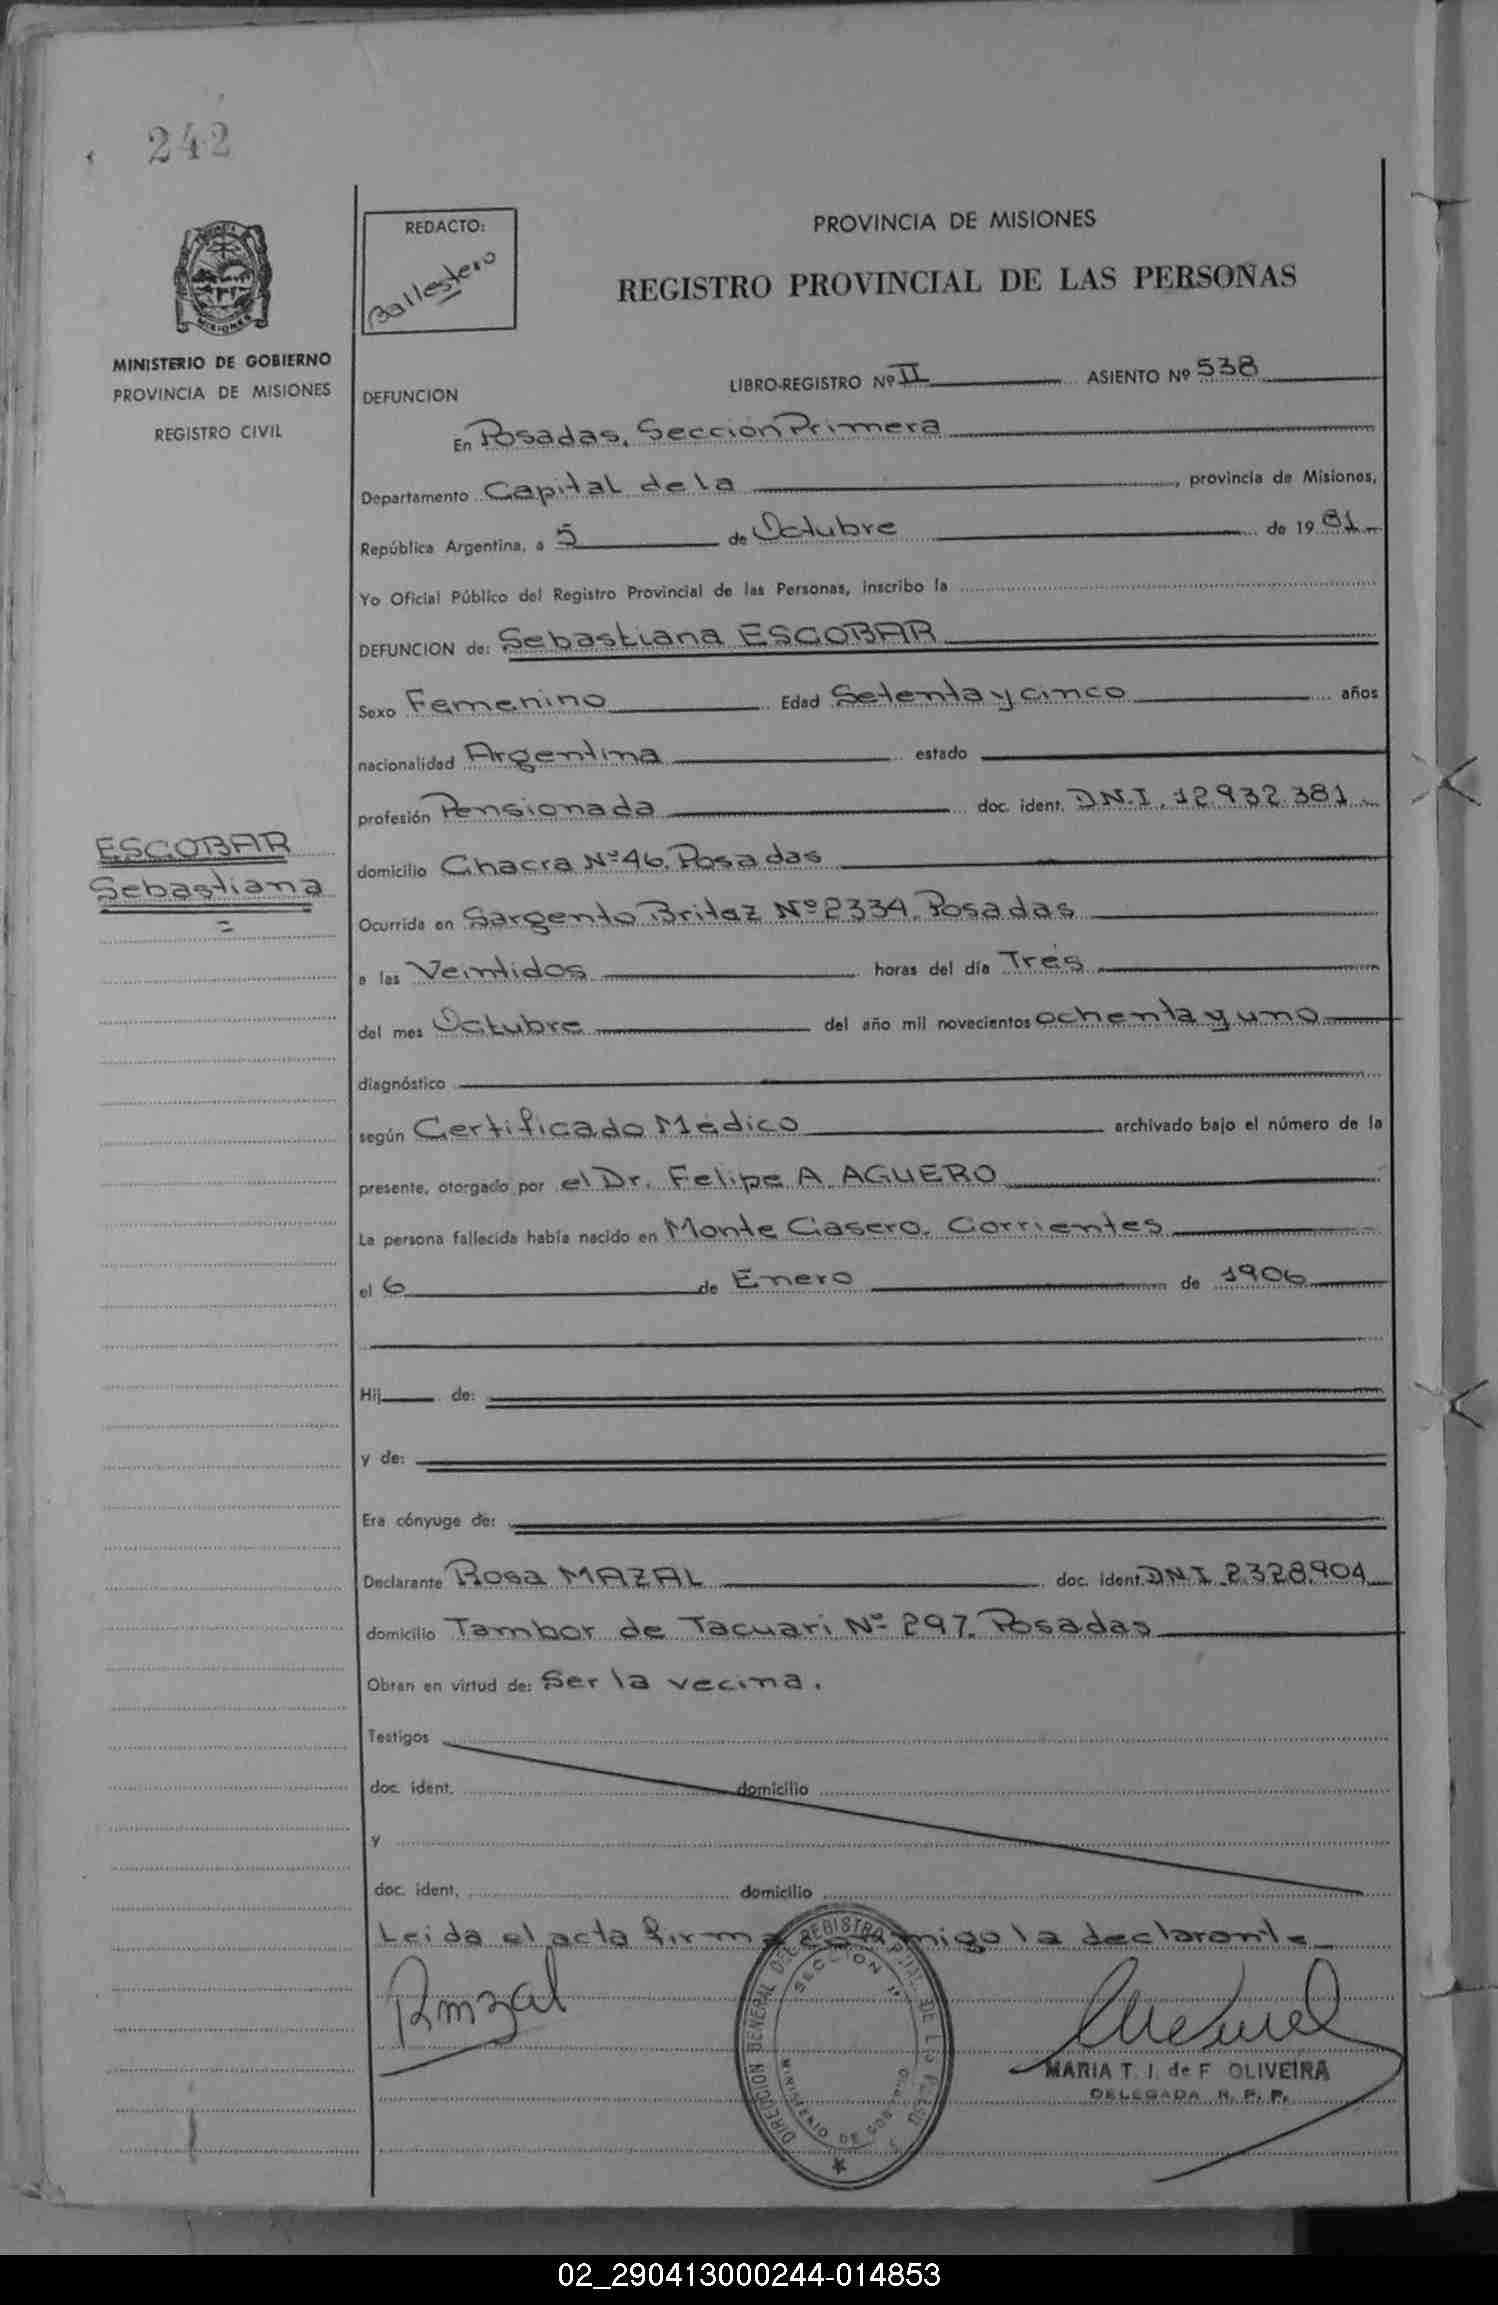 242
REDACTO:
Ballestero
PROVINCIA DE MISIONES
REGISTRO PROVINCIAL DE LAS PERSONAS
MISIONES
MINISTERIO DE GOBIERNO
PROVINCIA DE MISIONES
REGISTRO CIVIL
DEFUNCION LIBRO-REGISTRO Nº II ASIENTO Nº 538
En Posadas, Sección Primera
Departamento Capital de la, provincia de Misiones,
República Argentina, a 5 de Octubre de 1981
Yo Oficial Público del Registro Provincial de las Personas, inscribo la
DEFUNCION de: Sebastiana ESCOBAR
Sexo Femenino Edad Setenta y cinco años
nacionalidad Argentina estado
profesión Pensionada doc. ident. D.N.I. 12932381
ESCOBAR
Sebastiana
domicilio Chacra Nº 46. Posadas
Ocurrida en Sargento Britaz Nº 2334. Posadas
a las Veintidos horas del día Trés
del mes Octubre del año mil novecientos ochenta y uno
diagnóstico
según Certificado Médico archivado bajo el número de la
presente, otorgado por el Dr. Felipe A. AGUERO
La persona fallecida había nacido en Monte Casero. Corrientes
el 6 de Enero de 1906
Hij de:
y de:
Era cónyuge de:
Declarante Rosa MAZAL doc. ident. DNI 2.328.904
domicilio Tambor de Tacuari Nº 297. Posadas
Obran en virtud de: Ser la vecina.
Testigos
doc. ident. domicilio
y
doc. ident. domicilio
Leida el acta firma conmigo la declarante
Rmzal
DIRECCION GENERAL DEL REGISTRO PCIAL. DE LAS PERSONAS
SECCION 1ª
MINISTERIO DE GOBIERNO
MARIA T. I. de F. OLIVEIRA
DELEGADA R. P. P.
02_290413000244-014853